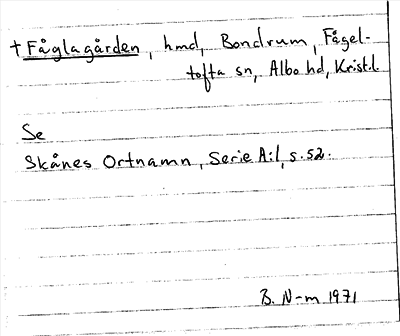 † Fåglagården, hmd, Bondrum, Fågel-
tofta sn, Albo hd, Krist.l.
Se
Skånes Ortnamn, Serie A:1, s. 52.
B. N-m 1971